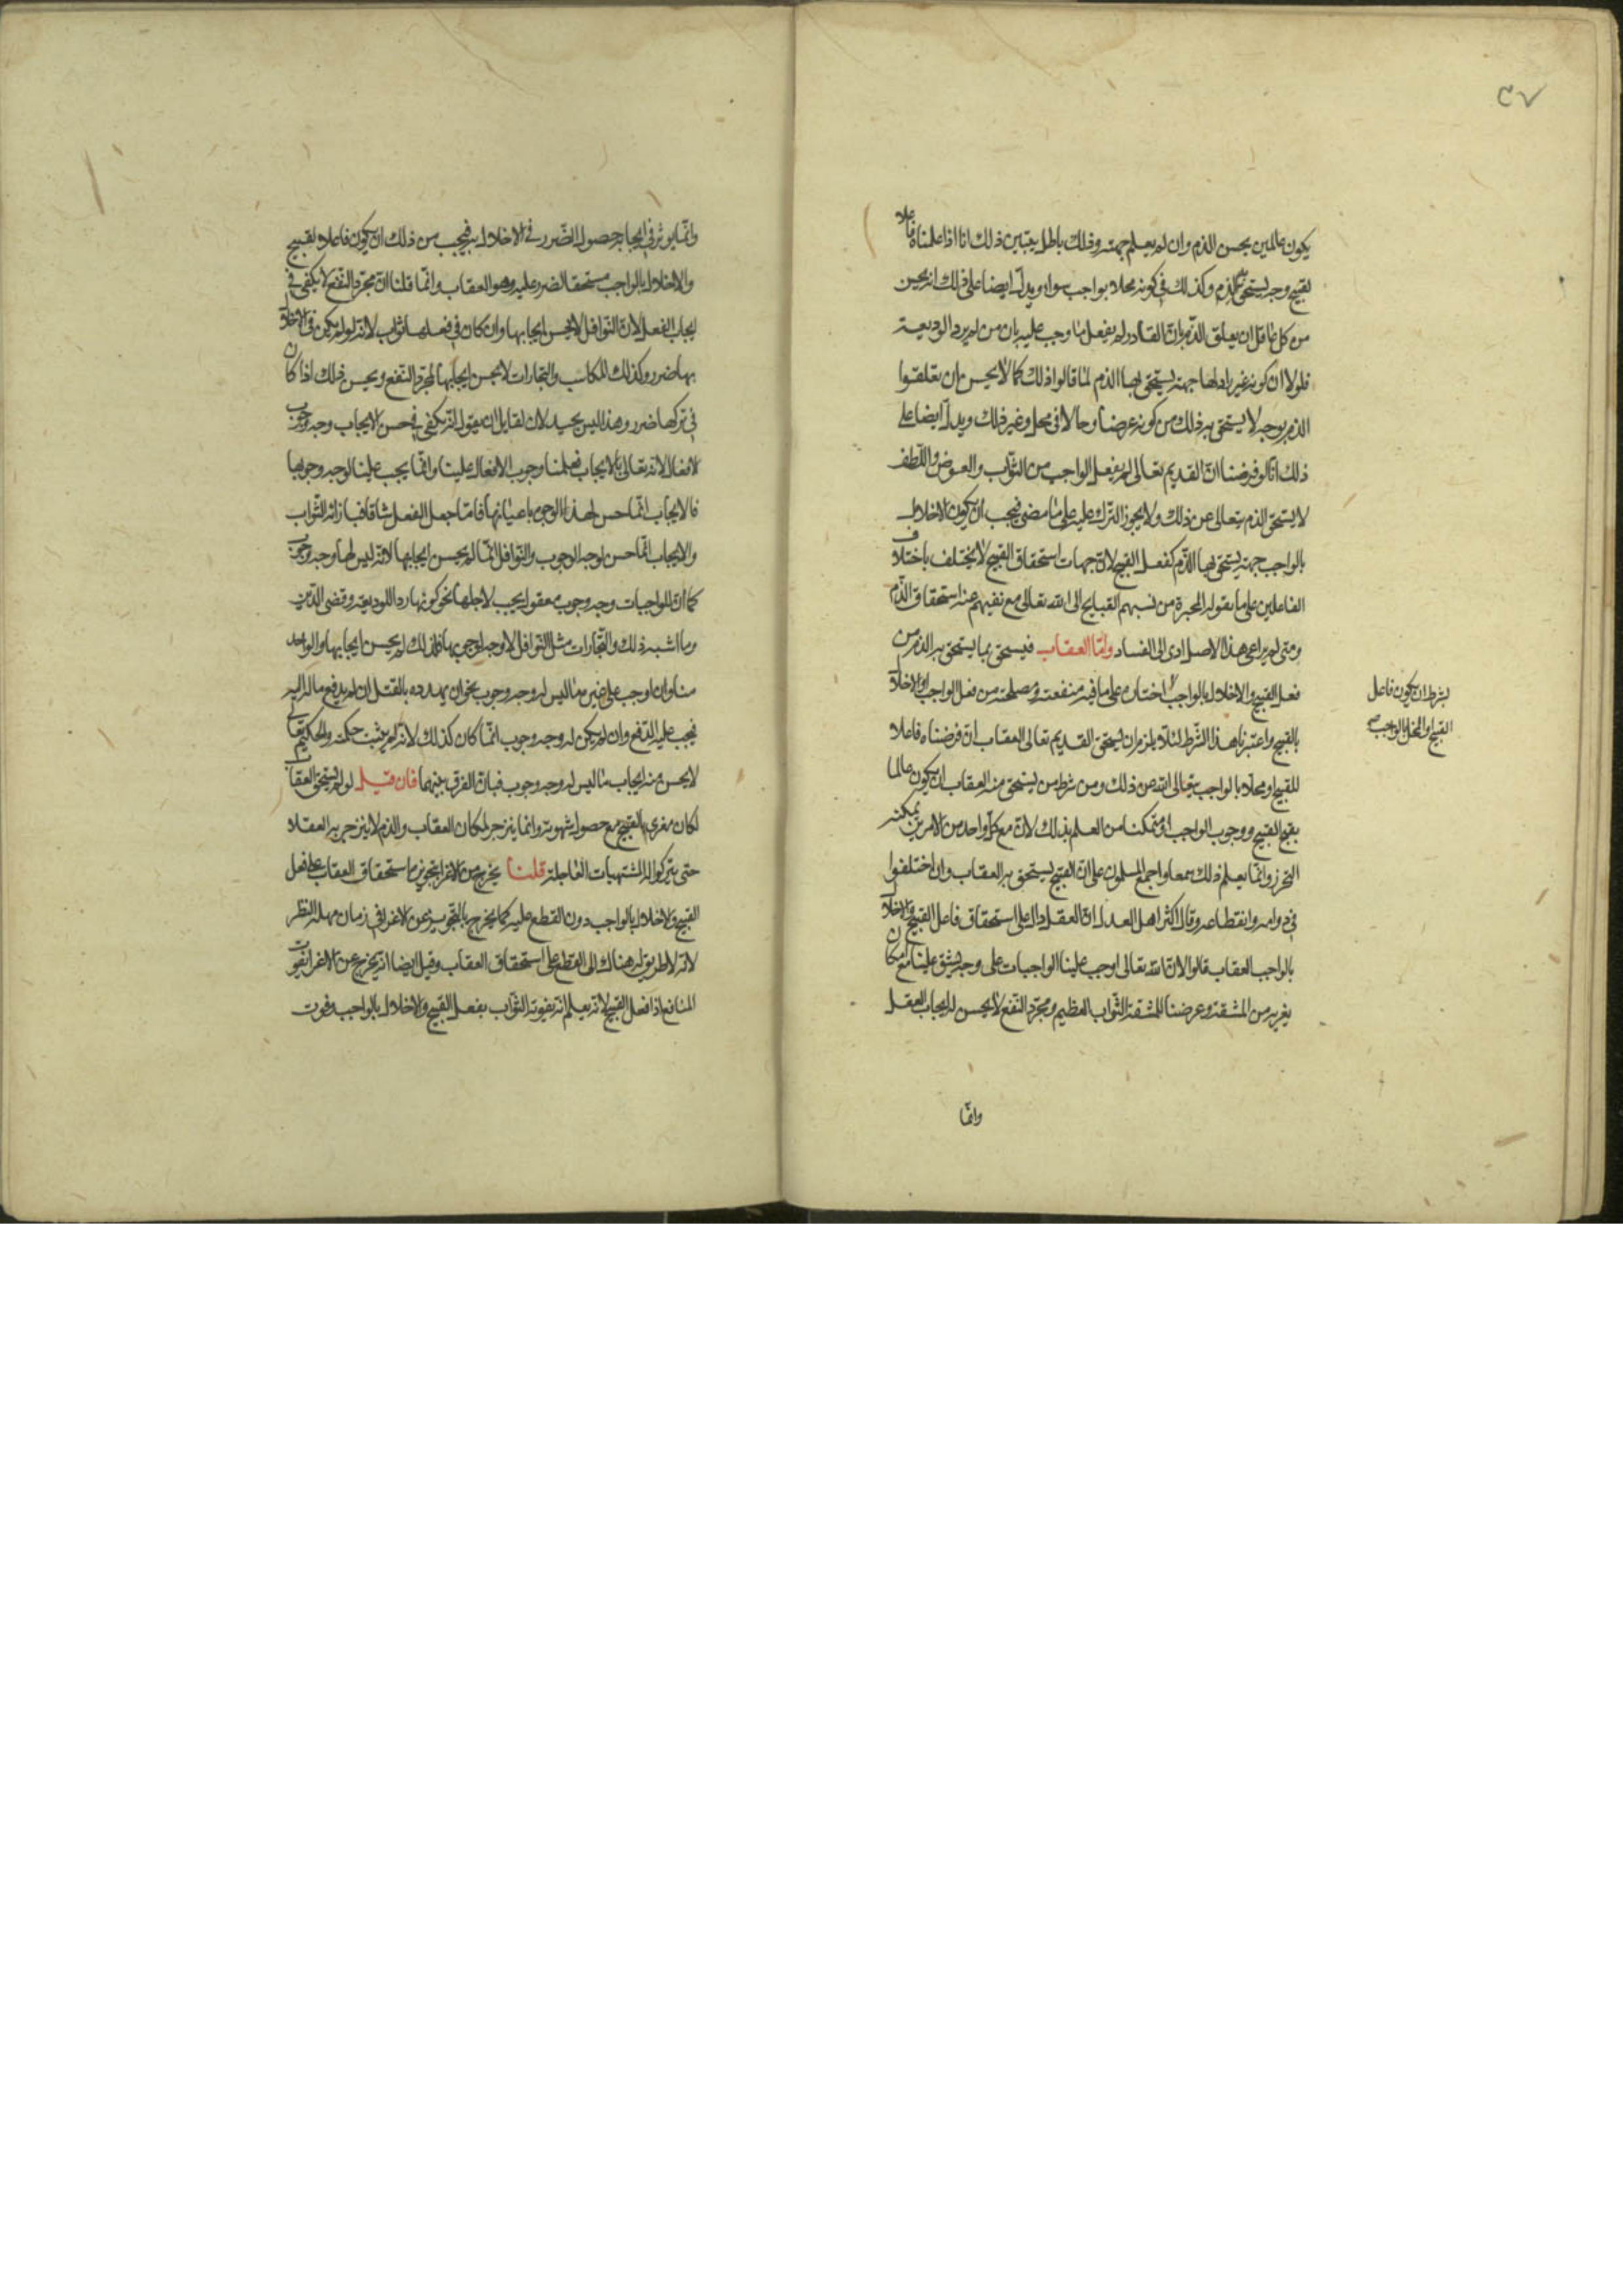 ٣٧
يكون عالمين بحسن الذم وان لم يعلم جهته وذلك باطل يتبين ذلك انا اذا علمناه فاعلا
لقبيح وجه يستحق الذم وكذلك في كونه مخلا بواجب سواء ويدل ايضا على ذلك انه يحسن
من كل عاقل ان يعلق الذم بان القادر لم يفعل ما وجب عليه بان من لم يرد الوديعة
فلولا ان كونه غير راد لها جهة يستحق بها الذم لما قالوا ذلك كما لا يحسن ان تعلقوا
الذم بوجه لا يستحق به ذلك من كونه عرضا وحالا في محل وغير ذلك ويدل ايضا على
ذلك انا لو فرضنا ان القديم تعالى لم يفعل الواجب من الثواب والعوض واللطف
لا يستحق الذم يتعالى عن ذلك ولا يجوز الترك عليه على ما مضى فيجب ان يكون الاخلال
بالواجب جهة يستحق بها الذم كفعل القبيح لان جهات استحقاق القبيح لا يختلف باختلاف
الفاعلين على ما يقوله المجبرة من نسبهم القبايح الى الله تعالى مع نفيهم عنه استحقاق الذم
ومتى لم يراعى هذا الاصل ادى الى الفساد واما العقاب فيستحق بما يستحق به الذم من
فعل القبيح والاخلال بالواجب اختاره على ما فيه منفعته ومصلحته من فعل الواجب او الاخلال
بشرط ان يكون فاعل
القبيح والمخل بالواجب
بالقبيح واعتبرنا هذا الشرط لئلا يلزم ان يستحق القديم تعالى العقاب ان فرضناه فاعلا
للقبيح او مخلا بالواجب يتعالى الله عن ذلك ومن شرط من يستحق منه العقاب ان يكون عالما
بقبح القبيح ووجوب الواجب او متمكنا من العلم بذلك لان مع كل واحد من الامرين يمكنه
التحرز وانما يعلم ذلك سمعا واجمع المسلمون على ان القبيح يستحق به العقاب وان اختلفوا
في دوامه وانقطاعه وقال اكثر اهل العدل ان العقل دال على استحقاق فاعل القبيح والاخلال
بالواجب العقاب قالوا لان الله تعالى اوجب علينا الواجبات على وجه يشق علينا مع امكان
يغريه من المشقة وعرضنا للمشقة الثواب العظيم ومجرد النفع لا يحسن له ايجاب العقل
وانما
وانما يوثر في ايجابه حصول الضرر في الاخلال به فيجب من ذلك ان يكون فاعلا لقبيح
والاخلال بالواجب مستحقا لضرر عليه وهو العقاب وانما قلنا ان مجرد النفع لا يكفي في
ايجاب الفعل لان النوافل لا يحسن ايجابها وان كان في فعلها ثواب لانه لو لم يكن في الاخلال
بها ضرر وكذلك المكاسب والتجارات لا يحسن ايجابها لمجرد النفع ويحسن ذلك اذا كان
في تركها ضرر وهذا ليس بجيد لان لقايل ان يقول انه يكفي في حسن الايجاب وجه وجوب
الافعال لانه تعالى بالايجاب فعلمنا وجوب الافعال علينا وانما يجب علينا لوجه وجوبها
فالايجاب انما حسن لهذا الوجوه باعيانها فاما جعل الفعل شاقا فبازائه الثواب
والايجاب انما حسن لوجه الوجوب والنوافل انما لم يحسن ايجابها لانه ليس لها وجه وجوب
كما ان للواجبات وجه وجوب معقول يجب لاجلها نحو كونها ردا للوديعة وقضى الدين
وما اشبه ذلك والتجارات مثل النوافل لا وجه لوجوبها فلذلك لم يحسن ايجابها والواحد
منا وان اوجب على غيره ما ليس له وجه وجوب نحو ان يهدده بالقتل ان لم يدفع ماله اليه
فيجب عليه الدفع وان لم يكن له وجه وجوب انما كان كذلك لانه لم يثبت حكمته والحكيم تعالى
لا يحسن منه ايجاب ما ليس له وجه وجوب فبان الفرق بينهما فان قيل لو لم يستحق العقاب
لكان مغرى بالقبيح مع حصول شهوته وانما ينزجر لمكان العقاب والذم لا ينزجر به العقلاء
حتى يتركوا له المشتهيات العاجلة قلنا يخرج من الاغراء تجويز استحقاق العقاب على فعل
القبيح والاخلال بالواجب دون القطع عليه كما يخرج بالتجويز عن الاغراء في زمان مهلة النظر
لانه لا طريق له هناك الى القطع على استحقاق العقاب وقيل ايضا انه يخرج عن الاغراء بفوت
المنافع اذا فعل القبيح لانه يعلم انه يفوته الثواب بفعل القبيح والاخلال بالواجب وفوت